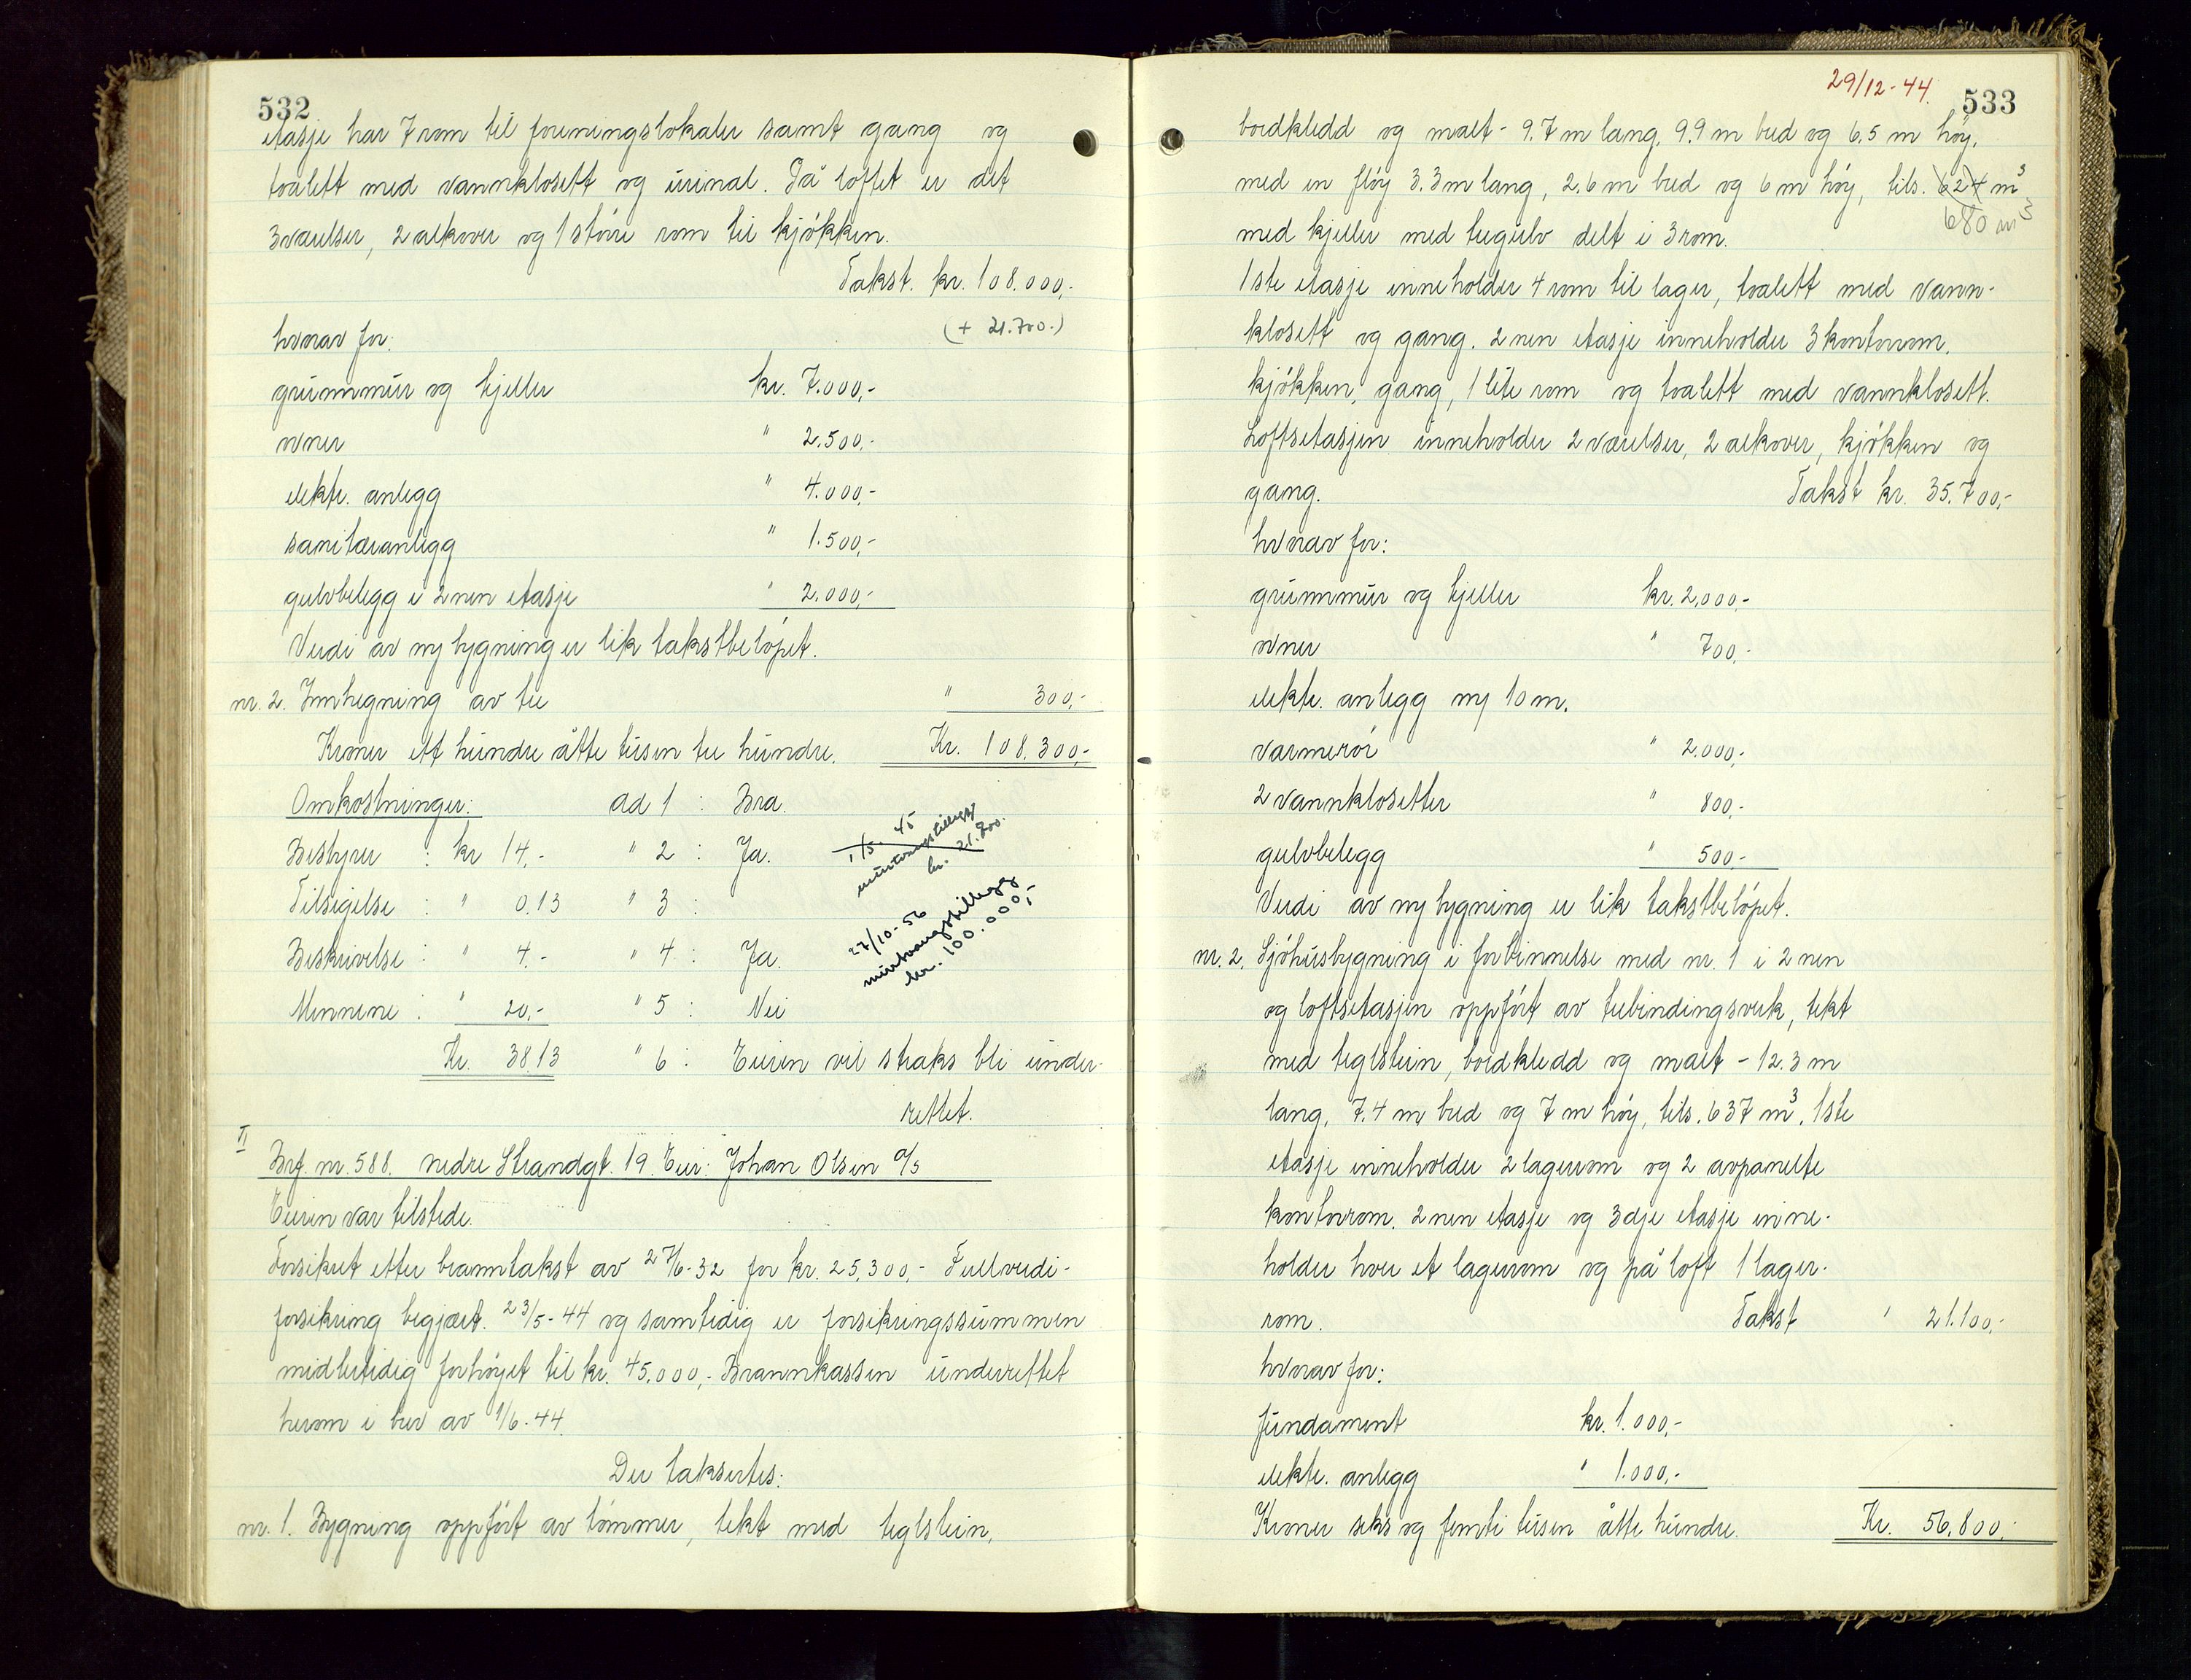 532
etasje har 7 rom til foreningslokaler samt gang og
toalett med vannklosett og urinal. På loftet er det
3 værelser, 2 alkover og 1 större rom til kjökken.
Takst. kr. 108.000,-
(+ 21.700.-)
hvorav for:
grunnmur og kjeller kr. 7.000,-
ovner " 2.500,-
elektr. anlegg " 4.000,-
sanitæranlegg " 1.500,-
gulvbelegg i 2nen etasje " 2.000,-
Verdi av ny bygning er lik takstbelöpet.
nr. 2. Innhegning av tre " 300,-
Kroner ett hundre åtte tusen tre hundre. Kr. 108.300,-
Omkostninger: ad 1 : Bra.
Bestyrer : kr 14,- " 2 : Ja.
1/5-45
murtvangstillegg
kr. 21.700.
Tilsigelse : " 0.13 " 3 :
Beskrivelse : " 4.- " 4 : Ja.
27/10-56
murtvangstillegg
kr. 100.000,-
Mennene : " 20,- " 5 : Nei
Kr. 38.13 " 6 : Eieren vil straks bli under-
rettet.
II
Brf. nr. 588. nedre Strandgt. 19. Eier: Johan Olsen A/S
Eieren var tilstede.
Forsikret etter branntakst av 27/6-32 for kr. 25,300,- Fullverdi-
forsikring begjært. 23/5-44 og samtidig er forsikringssummen
midlertidig forhöyet til kr. 45.000,- Brannkassen underrettet
herom i brev av 1/6-44.
Der taksertes:
nr. 1. Bygning oppfört av tömmer, tekt med teglstein,
29/12-44.
533
bordkledd og malt - 9.7 m lang, 9.9 m bred og 6,5 m höy,
med en flöy 3.3 m lang, 2,6 m bred og 6 m höy, tils. 624 m³
680 m³
med kjeller med tregulv delt i 3 rom.
1ste etasje inneholder 4 rom til lager, toalett med vann-
klosett og gang. 2nen etasje inneholder 3 kontorrom,
kjökken, gang, 1 lite rom og toalett med vannklosett.
Loftsetasjen inneholder 2 værelser, 2 alkover, kjökken og
gang. Takst kr. 35.700,-
hvorav for:
grunnmur og kjeller kr. 2,000,-
ovner " 700,-
elektr. anlegg ny 10 m.
varmerör " 2.000,-
2 vannklosetter " 800,-
gulvbelegg " 500,-
Verdi av ny bygning er lik takstbelöpet.
nr. 2. Sjöhusbygning i forbinnelse med nr. 1 i 2nen
og loftsetasjen oppfört av trebindingsverk, tekt
med teglstein, bordkledd og malt - 12.3 m
lang, 7.4 m bred og 7 m höy, tils. 637 m³. 1ste
etasje inneholder 2 lagerrom og 2 avpanelte
kontorrom. 2nen etasje og 3dje etasje inne-
holder hver et lagerrom og på loft 1 lager-
rom. Takst " 21.100,-
hvorav for:
fundament kr. 1.000,-
elektr. anlegg " 1.000,-
Kroner seks og femti tusen åtte hundre. Kr. 56,800,-